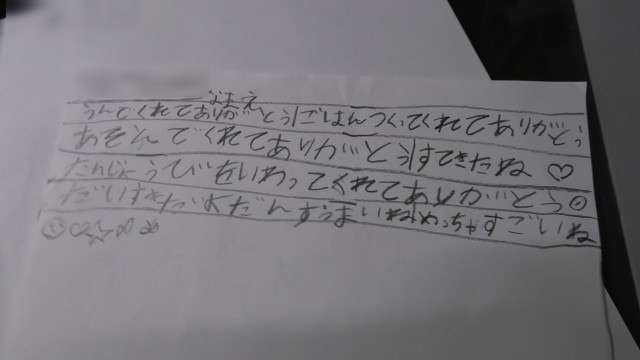 なまえ
うんでくれてありがとうごはんつくってくれてありがとう
あそんでくれてありがとうすてきだね♡
たんじょうびをいわってくれてありがとう
だいすきだよだんすうまいねめっちゃすごいね